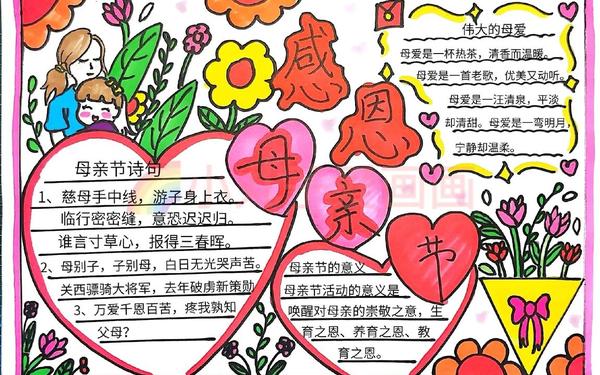 感恩
母亲节
伟大的母爱
母爱是一杯热茶，清香而温暖。
母爱是一首老歌，优美又动听。
母爱是一汪清泉，平淡
却清甜。母爱是一弯明月，
宁静却温柔。
母亲节诗句
1、慈母手中线，游子身上衣。
临行密密缝，意恐迟迟归。
谁言寸草心，报得三春晖。
2、母别子，子别母，白日无光哭声苦。
关西骠骑大将军，去年破虏新策勋
3、万爱千恩百苦，疼我孰知
父母？
母亲节的意义
母亲节活动的意义是
唤醒对母亲的崇敬之意，生
育之恩、养育之恩、教
育之恩。